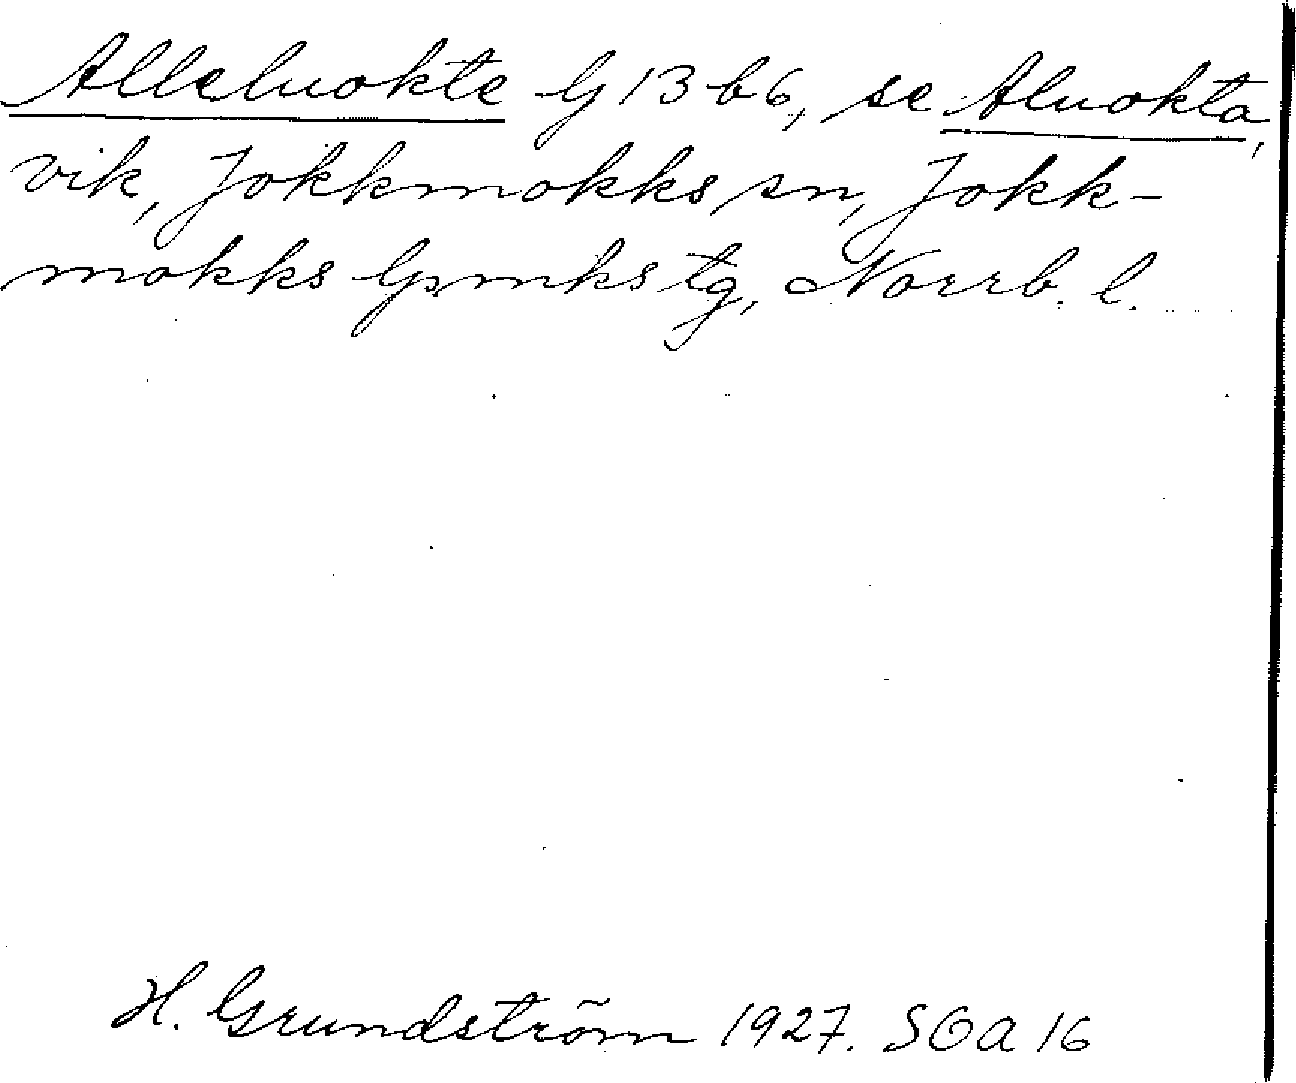 Alleluokte G 13 b6, se Aluokta,
vik, Jokkmokks sn, Jokk-
mokks lpmks tg, Norrb. l.
H. Grundström 1927. SOA 16